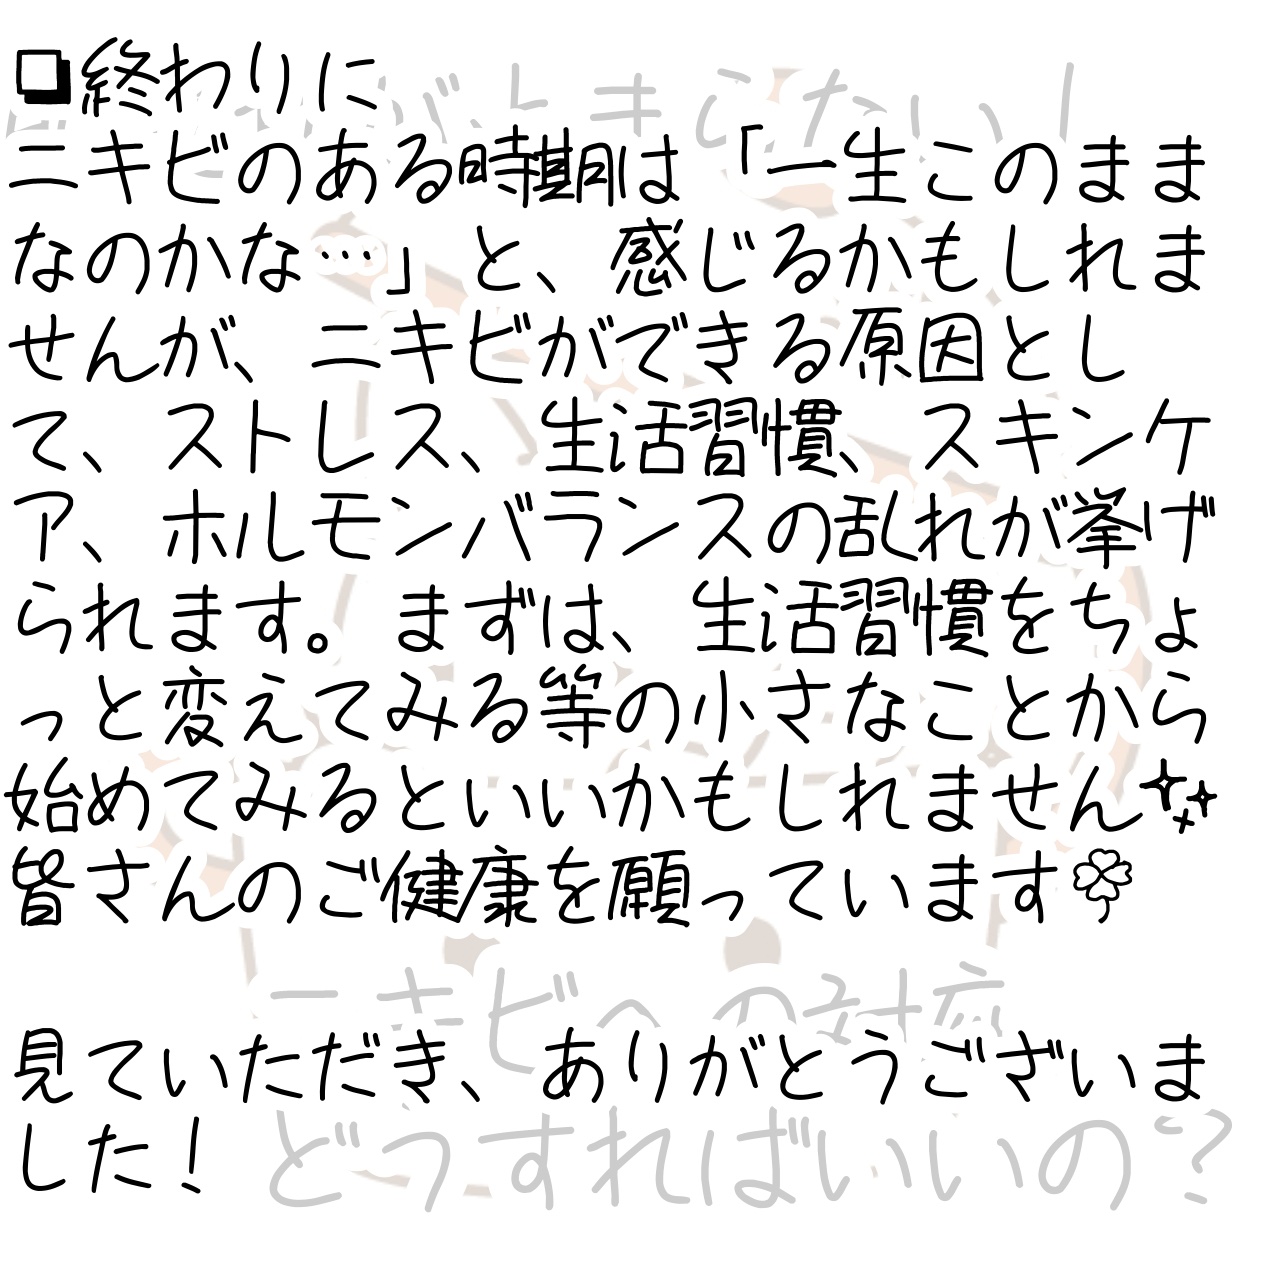 ❏終わりに
ニキビのある時期は「一生このまま
なのかな…」と、感じるかもしれま
せんが、ニキビができる原因とし
て、ストレス、生活習慣、スキンケ
ア、ホルモンバランスの乱れが挙げ
られます。まずは、生活習慣をちょ
っと変えてみる等の小さなことから
始めてみるといいかもしれません✨
皆さんのご健康を願っています🍀
ニキビへの対応
見ていただき、ありがとうございま
した！
どうすればいいの？